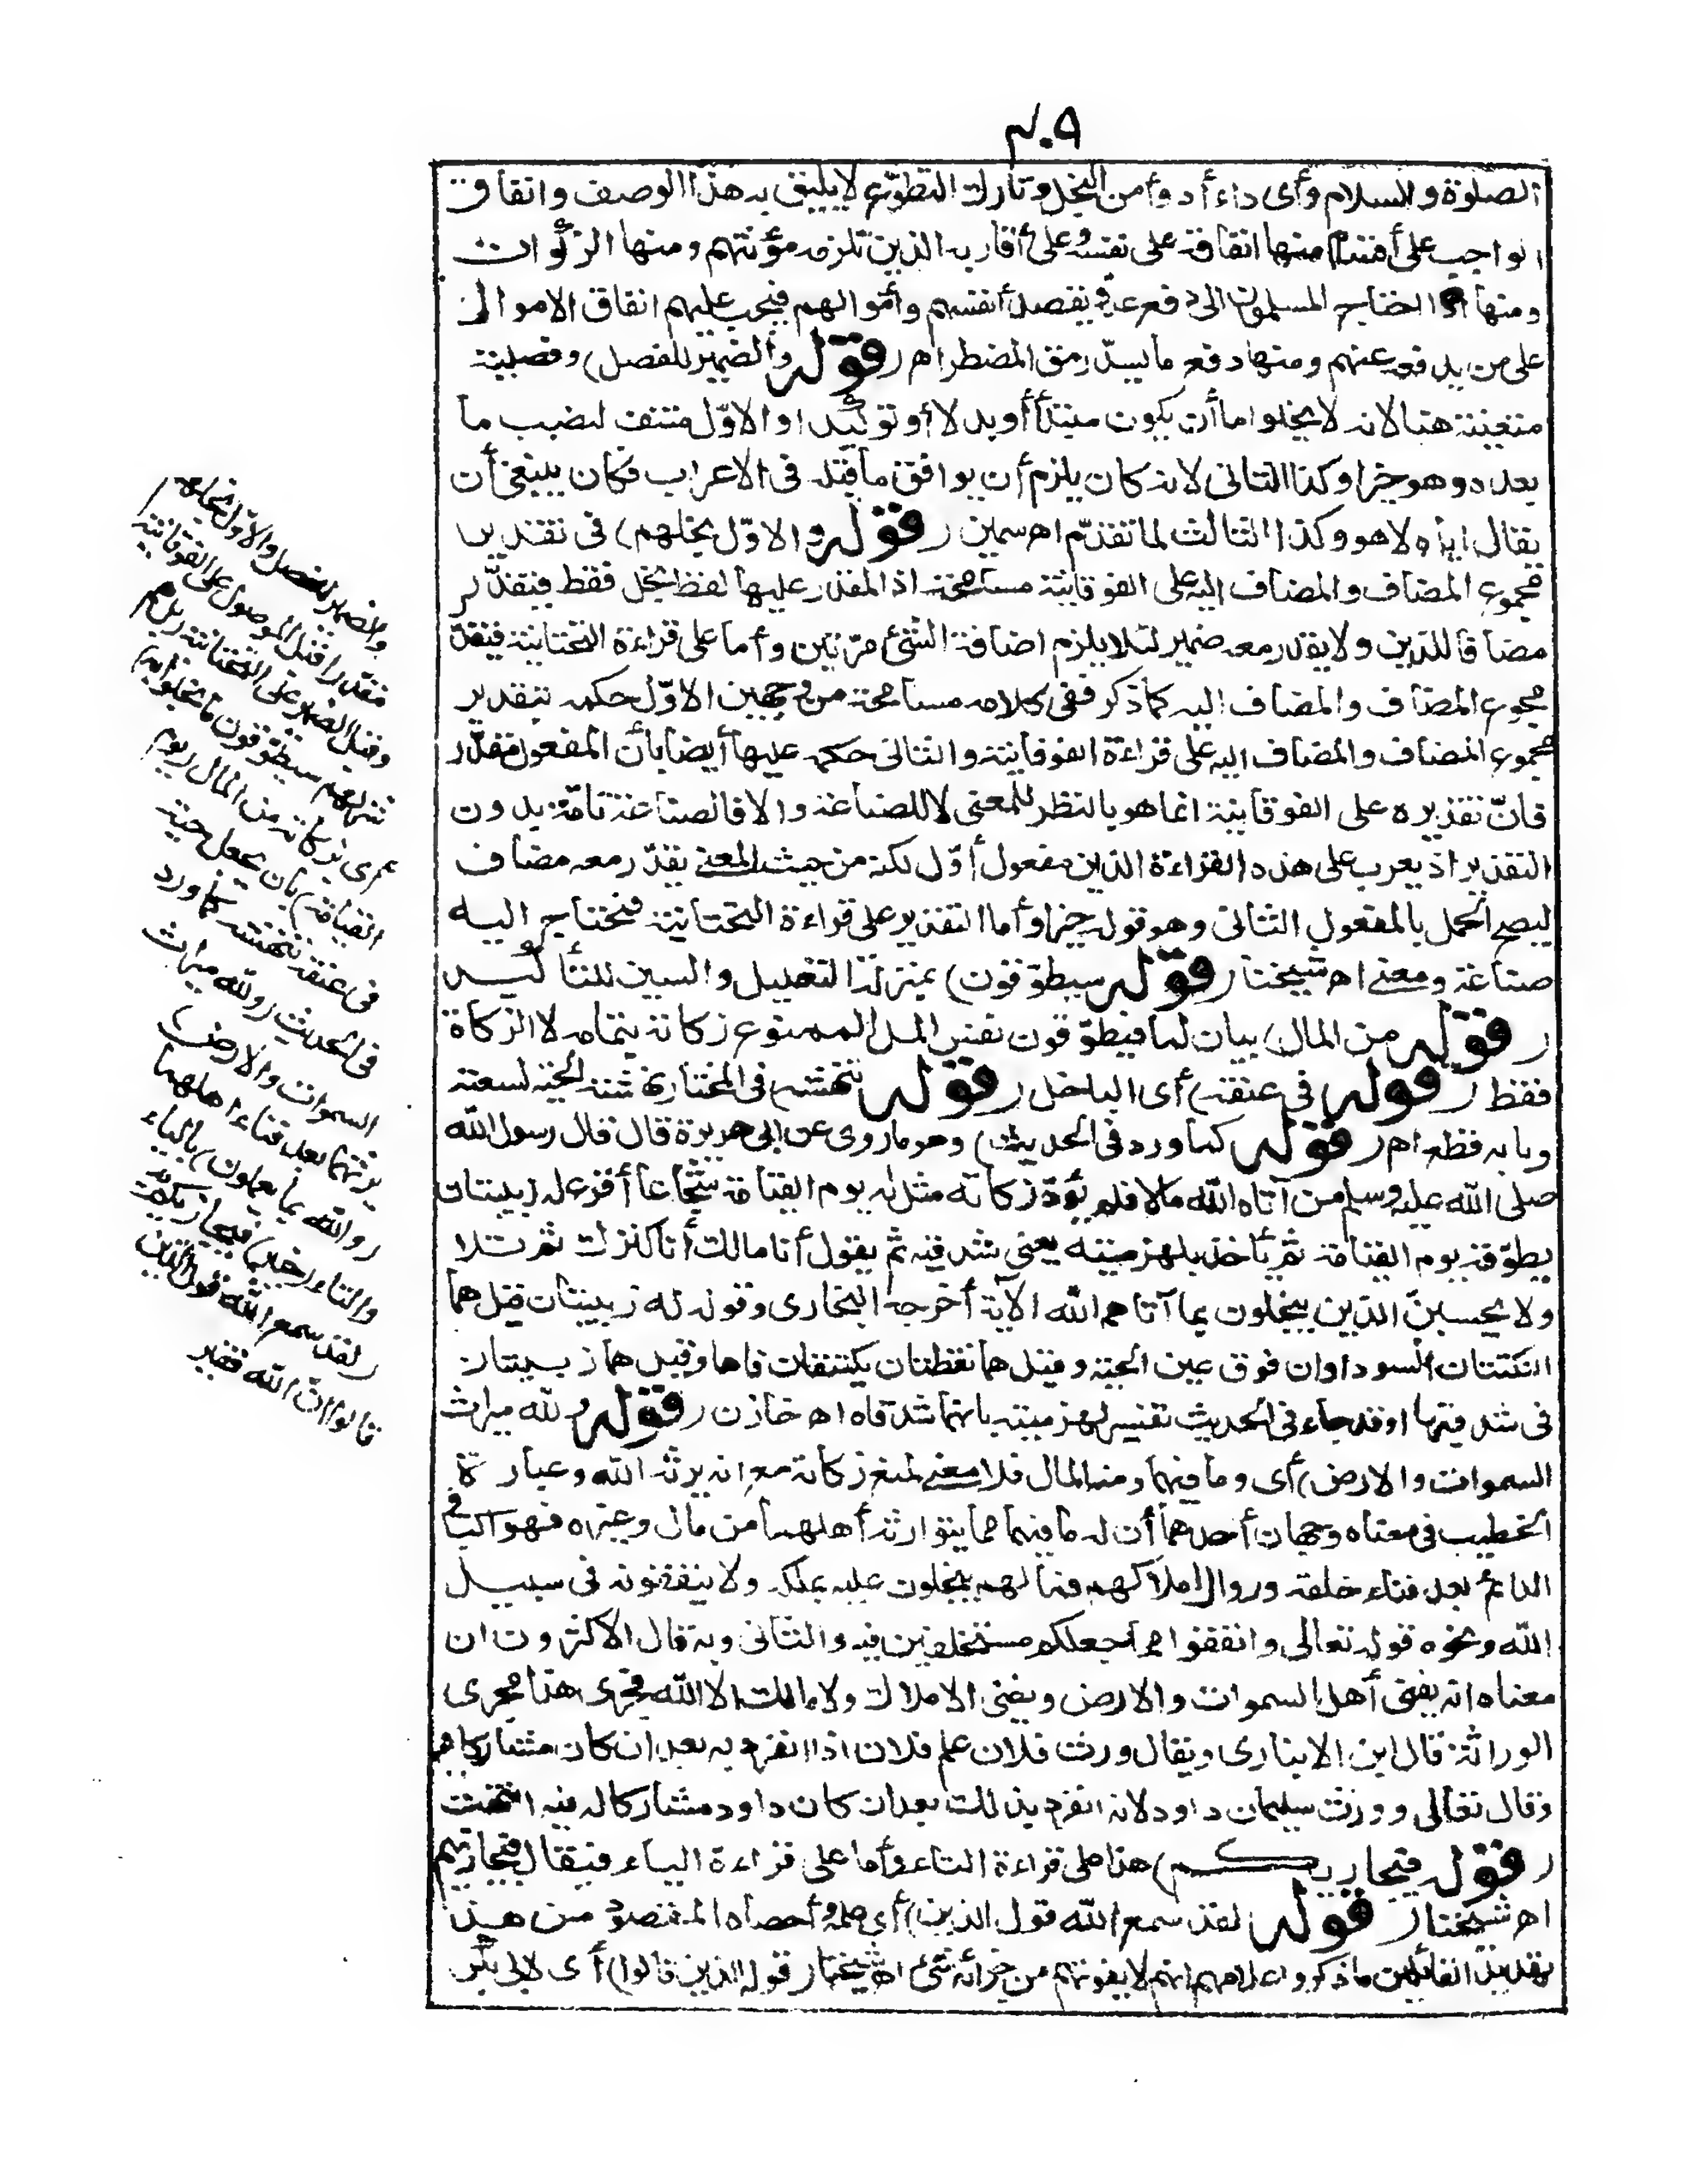 ٤٠٩
الصلوة والسلام وأى داء أدوأ من البخل وتارك التطوّع لا يليق به هذا الوصف وانفاق
الواجب على أقسام منها انفاقه على نفسه وعلى أقاربه الذين تلزمه مؤنتهم ومنها الزكوات
ومنها اذا احتاج المسلمون الى دفع عدوّ يقصد أنفسهم وأموالهم فيجب عليهم انفاق الاموال
على من يدفعه عنهم ومنها دفع ما يسدّ رمق المضطر اه (قوله والضمير للفصل) وفصليته
متعينة هنا لانه لا يخلو اما أن يكون مبتدأ أو بدلا أو توكيدا والاوّل منتف لنصب ما
بعده وهو خيرا وكذا الثانى لانه كان يلزم أن يوافق ما قبله فى الاعراب فكان ينبغى أن
يقال اياه لا هو وكذا الثالث لما تقدّم اه سمين (قوله والاوّل بخلهم) فى تقدير
مجموع المضاف والمضاف اليه على الفوقانية مسامحة اذ المقدر عليها لفظ بخل فقط فيقدّر
مضافا للذين ولا يقدر معه ضمير لئلا يلزم اضافة الشئ مرّتين وأما على قراءة التحتانية فيقدّر
مجموع المضاف والمضاف اليه كما ذكر ففى كلامه مسامحة من وجهين الاوّل حكمه بتقدير
مجموع المضاف والمضاف اليه على قراءة الفوقانية والثانى حكمه عليها أيضا بأن المفعول مقدّر
فانّ تقديره على الفوقانية انما هو بالنظر للمعنى لا للصناعة والا فالصناعة تامّة بدون
التقدير اذ يعرب على هذه القراءة الذين مفعول أوّل لكنه من حيث المعنى يقدّر معه مضاف
ليصح الحمل بالمفعول الثانى وهو قوله خيرا وأما التقدير على قراءة التحتانية فتحتاج اليه
صناعة ومعنى اه شيخنا (قوله سيطوّقون) بمنزلة التعليل والسين للتأكيد
(قوله من المال) بيان لما فيطوّقون نفس المال الممنوع زكاته بتمامه لا الزكاة
فقط (قوله فى عنقه) أى الباخل (قوله تنهشه) فى المختار نهشته الحية لسعته
وبابه قطع اه (قوله كما ورد فى الحديث) وهو ما روى عن أبى هريرة قال قال رسول الله
صلى الله عليه وسلم من آتاه الله مالا فلم يؤدّ زكاته مثل له يوم القيامة شجاعا أقرع له زبيبتان
يطوّقه يوم القيامة ثم يأخذ بلهزمتيه يعنى شدقيه ثم يقول أنا مالك أنا كنزك ثم تلا
ولا يحسبنّ الذين يبخلون بما آتاهم الله الآية أخرجه البخارى وقوله له زبيبتان قيل هما
النكتتان السوداوان فوق عين الحية وقيل هما نقطتان يكتنفان فاها وقيل هما زبيبتان
فى شدقيها وقد جاء فى الحديث تفسير لهزمتيه بانهما شدقاه اه خازن (قوله ولله ميراث
السموات والارض) أى وما فيهما ومنه المال فلا معنى لمنع زكاته مع انه يرثه الله وعبارة
الخطيب فى معناه وجهان أحدهما أن له ما فيهما مما يتوارثه أهلهما من مال وغيره فهو الباقى
الدائم بعد فناء خلقه وزوال املاكهم فما لهم يبخلون عليه بملكه ولا ينفقونه فى سبيل
الله ونحوه قوله تعالى وانفقوا مما جعلكم مستخلفين فيه والثانى وبه قال الاكثرون ان
معناه انه يفنى أهل السموات والارض ويفنى الاملاك ولا مالك الا الله فجرى هذا مجرى
الوراثة قال ابن الانبارى ويقال ورث فلان علم فلان اذا انفرد به بعد ان كان مشاركا فيه
وقال تعالى وورث سليمان داود لانه انفرد بذلك بعد ان كان داود مشاركا له فيه انتهت
(قوله فيجازيكم) هذا على قراءة التاء وأما على قراءة الياء فيقال فيجازيهم
اه شيخنا (قوله لقد سمع الله قول الذين) أى علمه وأحصاه المقصود من هذا
تهديد القائلين ما ذكر واعلامهم انهم لا يفوتهم من جزائه شئ اه شيخنا (قوله الذين قالوا) أى لابى بكر
والضمير للفصل والاوّل بخلهم
مقدّرا قبل الموصول على الفوقانية
وقبل الضمير على التحتانية (بل هو
شر لهم سيطوّقون ما بخلوا به)
أى بزكاته من المال (يوم
القيامة) بأن يجعل حية
فى عنقه تنهشه كما ورد
فى الحديث (ولله ميراث
السموات والارض)
يرثهما بعد فناء أهلهما
(والله بما يعملون) بالياء
والتاء (خبير) فيجازيكم به
(لقد سمع الله قول الذين
قالوا ان الله فقير